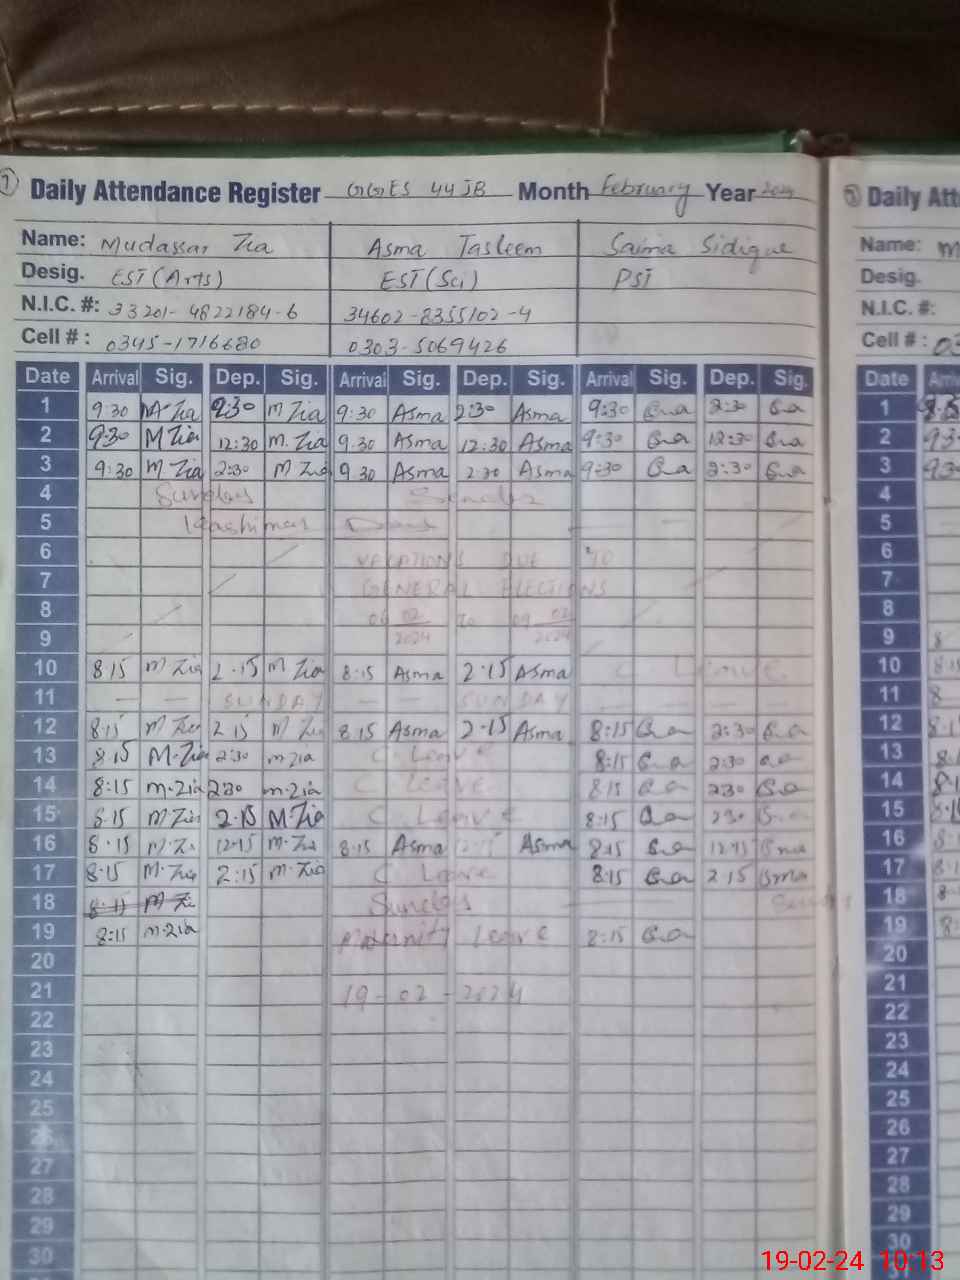 7 Daily Attendance Register GGES 44 JB Month February Year 2024
Name: Mudassar Zia Asma Tasleem Saima Sidique
Desig. EST (Arts) EST (Sci) PST
N.I.C. #: 33201-4822184-6 34602-8355102-4
Cell # : 0345-1716680 0303-5069426
Date Arrival Sig. Dep. Sig. Arrival Sig. Dep. Sig. Arrival Sig. Dep. Sig.
1 9:30 M Zia 2:30 M Zia 9:30 Asma 2:30 Asma 9:30 2:30
2 9:30 M Zia 12:30 M. Zia 9:30 Asma 12:30 Asma 9:30 12:30
3 9:30 M Zia 2:30 M Zia 9:30 Asma 2:30 Asma 9:30 2:30
4 Sunday Sunday
5 Kashimar Day
6 VACATIONS DUE TO
7 GENERAL ELECTIONS
8 06 02/2024 TO 09 02/2024
9
10 8:15 M Zia 2:15 M Zia 8:15 Asma 2:15 Asma C. Leave
11 — — SUNDAY — — SUNDAY
12 8:15 M Zia 2:15 M Zia 8:15 Asma 2:15 Asma 8:15 2:30
13 8:15 M.Zia 2:30 m zia C. Leave 8:15 2:30
14 8:15 m.zia 2:30 m.zia C. LEAVE 8:15 2:30
15 8:15 M Zia 2:15 M.Zia C. Leave 8:15 2:30
16 8:15 M.Zia 12:15 M.Zia 8:15 Asma 12:15 Asma 8:15 12:15
17 8:15 M.Zia 2:15 M.Zia C. Leave 8:15 2:15
18 8:15 M Zia Sunday Sunday
19 8:15 m.zia Maternity Leave 8:15
20
21 19-02-2024
22
23
24
25
26
27
28
29
30
Daily Att
Name: M
Desig.
N.I.C. #:
Cell # : 03
Date
1
2 9:3
3 9:3
4
5
6
7
8
9 8
10 8:15
11 8
12 8:1
13 8:
14 8:1
15 8:15
16 8:15
17 8:1
18 8
19 8:
20
21
22
23
24
25
26
27
28
29
30
19-02-24 10:13